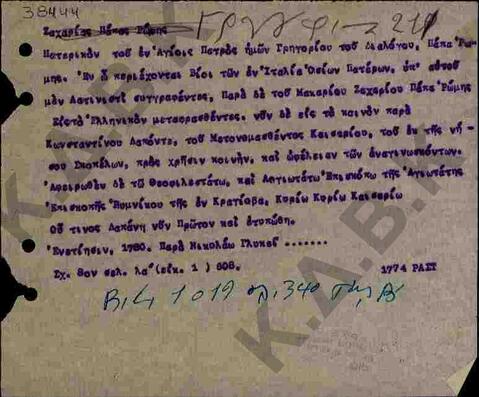 38444
Ζαχαρίας Πάπας Ρώμης
Πατερικὸν τοῦ ἐν Ἁγίοις Πατρὸς ἡμῶν Γρηγορίου τοῦ Διαλόγου, Πάπα Ρώ-
μης. Ἐν ᾧ περιέχονται Βίοι τῶν ἐν Ἰταλίᾳ Ὁσίων Πατέρων, ὑπ' αὐτοῦ
μὲν Λατινιστὶ συγγραφέντες, Παρὰ δὲ τοῦ Μακαρίου Ζαχαρίου Πάπα Ρώμης
Εἰς τὸ Ἑλληνικὸν μεταφρασθέντες. νῦν δὲ εἰς τὸ κοινὸν παρὰ
Κωνσταντίνου Δαπόντε, τοῦ Μετονομασθέντος Καισαρίου, τοῦ ἐν τῇ νή-
σου Σκοπέλων, πρὸς χρῆσιν κοινήν, καὶ ὠφέλειαν τῶν ἀναγινωσκόντων.
Ἀφιερωθὲν δὲ τῷ Θεοφιλεστάτῳ, καὶ Λογιωτάτῳ Ἐπισκόπῳ τῆς Ἁγιωτάτης
Ἐπισκοπῆς Ρυμνίκου τῆς ἐν Κραϊόβᾳ, Κυρίῳ Κυρίῳ Καισαρίῳ
Οὗ τινος Δαπάνῃ νῦν Πρῶτον καὶ ἐτυπώθη.
Ἐνετίησιν, 1780. Παρὰ Νικολάῳ Γλυκεῖ .......
Σχ. 8ον σελ. λα΄(εἰκ. 1 ) 608. 1774 ΡΑΣΤ
1019 340
Κ.Δ.Β.Κ
Κ.Δ.Β.Κ